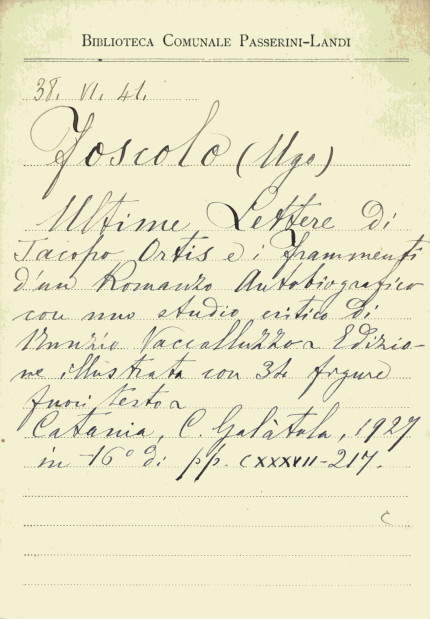 BIBLIOTECA COMUNALE PASSERINI-LANDI
38. VI. 41.
Foscolo (Ugo)
Ultime Lettere di
Jacopo Ortis e i frammenti
d'un Romanzo Autobiografico
con uno studio critico di
Nunzio Vaccalluzzo Edizio-
ne illustrata con 34 figure
fuori testo
Catania, C. Galàtola, 1927
in -16° di pp. CXXXVII-217.
c